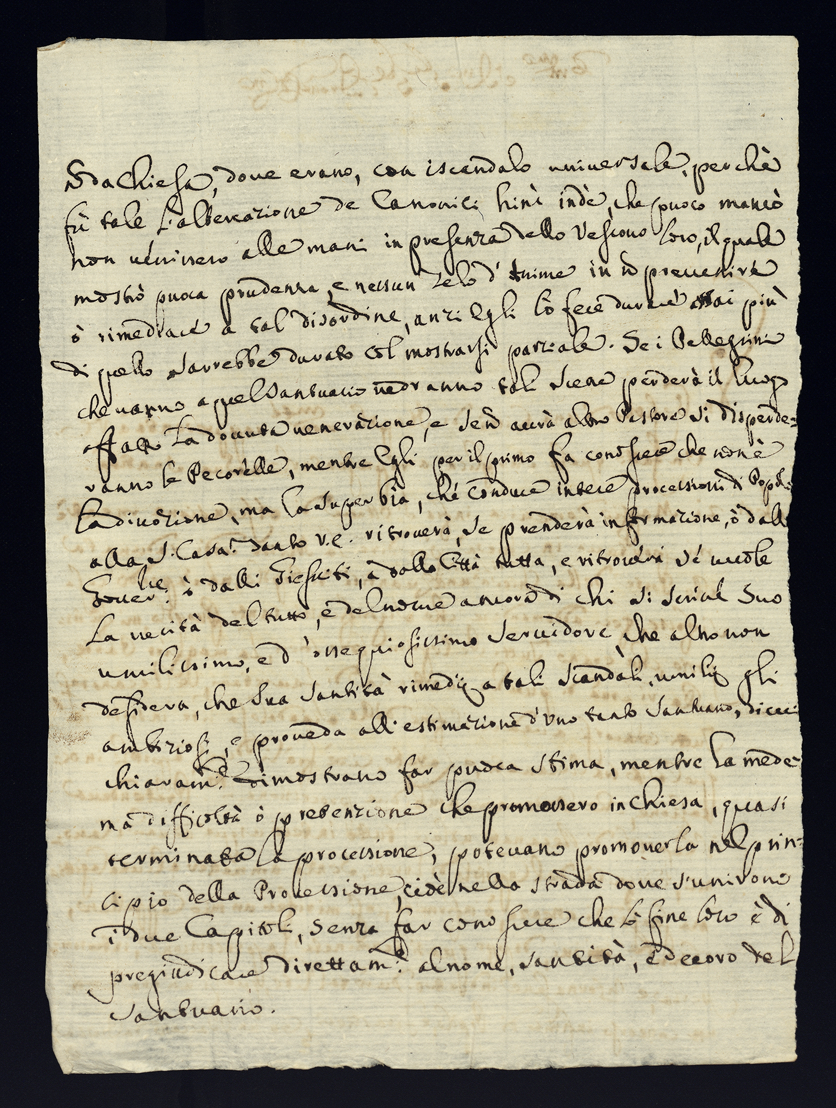 S.da Chiesa, doue erano, con iscandalo uniuersale, perchè
fù tale l'altercazione de Canonici hinc indè, che puoco mancò
non uenissero alle mani in presenza dello Vescouo loro, il quale
mostrò puoca prudenza, e nessun zelo d'Anime in nò preuenire
ò rimediare a tal disordine, anzi Egli lò fece durare assai più
di quello sarrebbe durato col mostrarsi parziale. Se i Pellegrini
che uanno a quel Santuario uedranno tali scene perderà il luogo
affatto la douuta uenerazione, e se nò aurà altro Pastore si disperde=
ranno le Pecorelle, mentre Egli per il primo fa conoscere che non è
la diuozione, ma la superbia, che conduce intere processioni di Popoli
alla S. Casa. Tanto V.E. ritrouerà, se prenderà informazione, ò dalli
ò dalli Giesuiti, ò dalla Città tutta, e ritrouerà sè uuole
la uerità del tutto, e del nome ancora di chi si scriue Suo
umilissimo, e d'ossequiosissimo seruidore, che altro non
desidera, che Sua Santità rimedij a tali scandali, umilij gli
ambiziosi, e proueda all'estimazione d'uno tanto Santuario, di cui
chiaram.e dimostrano far puoca stima, mentre la mede=
ma difficoltà ò pretenzione che promossero in chiesa, quasi
terminata la processione, poteuano promouerla nel prin=
cipio della Processione, cioè nella strada doue s'unirono
i due Capitoli, senza far conoscere che lò fine loro è di
pregiudicare direttam.e al nome, santità, e decoro del
Santuario.